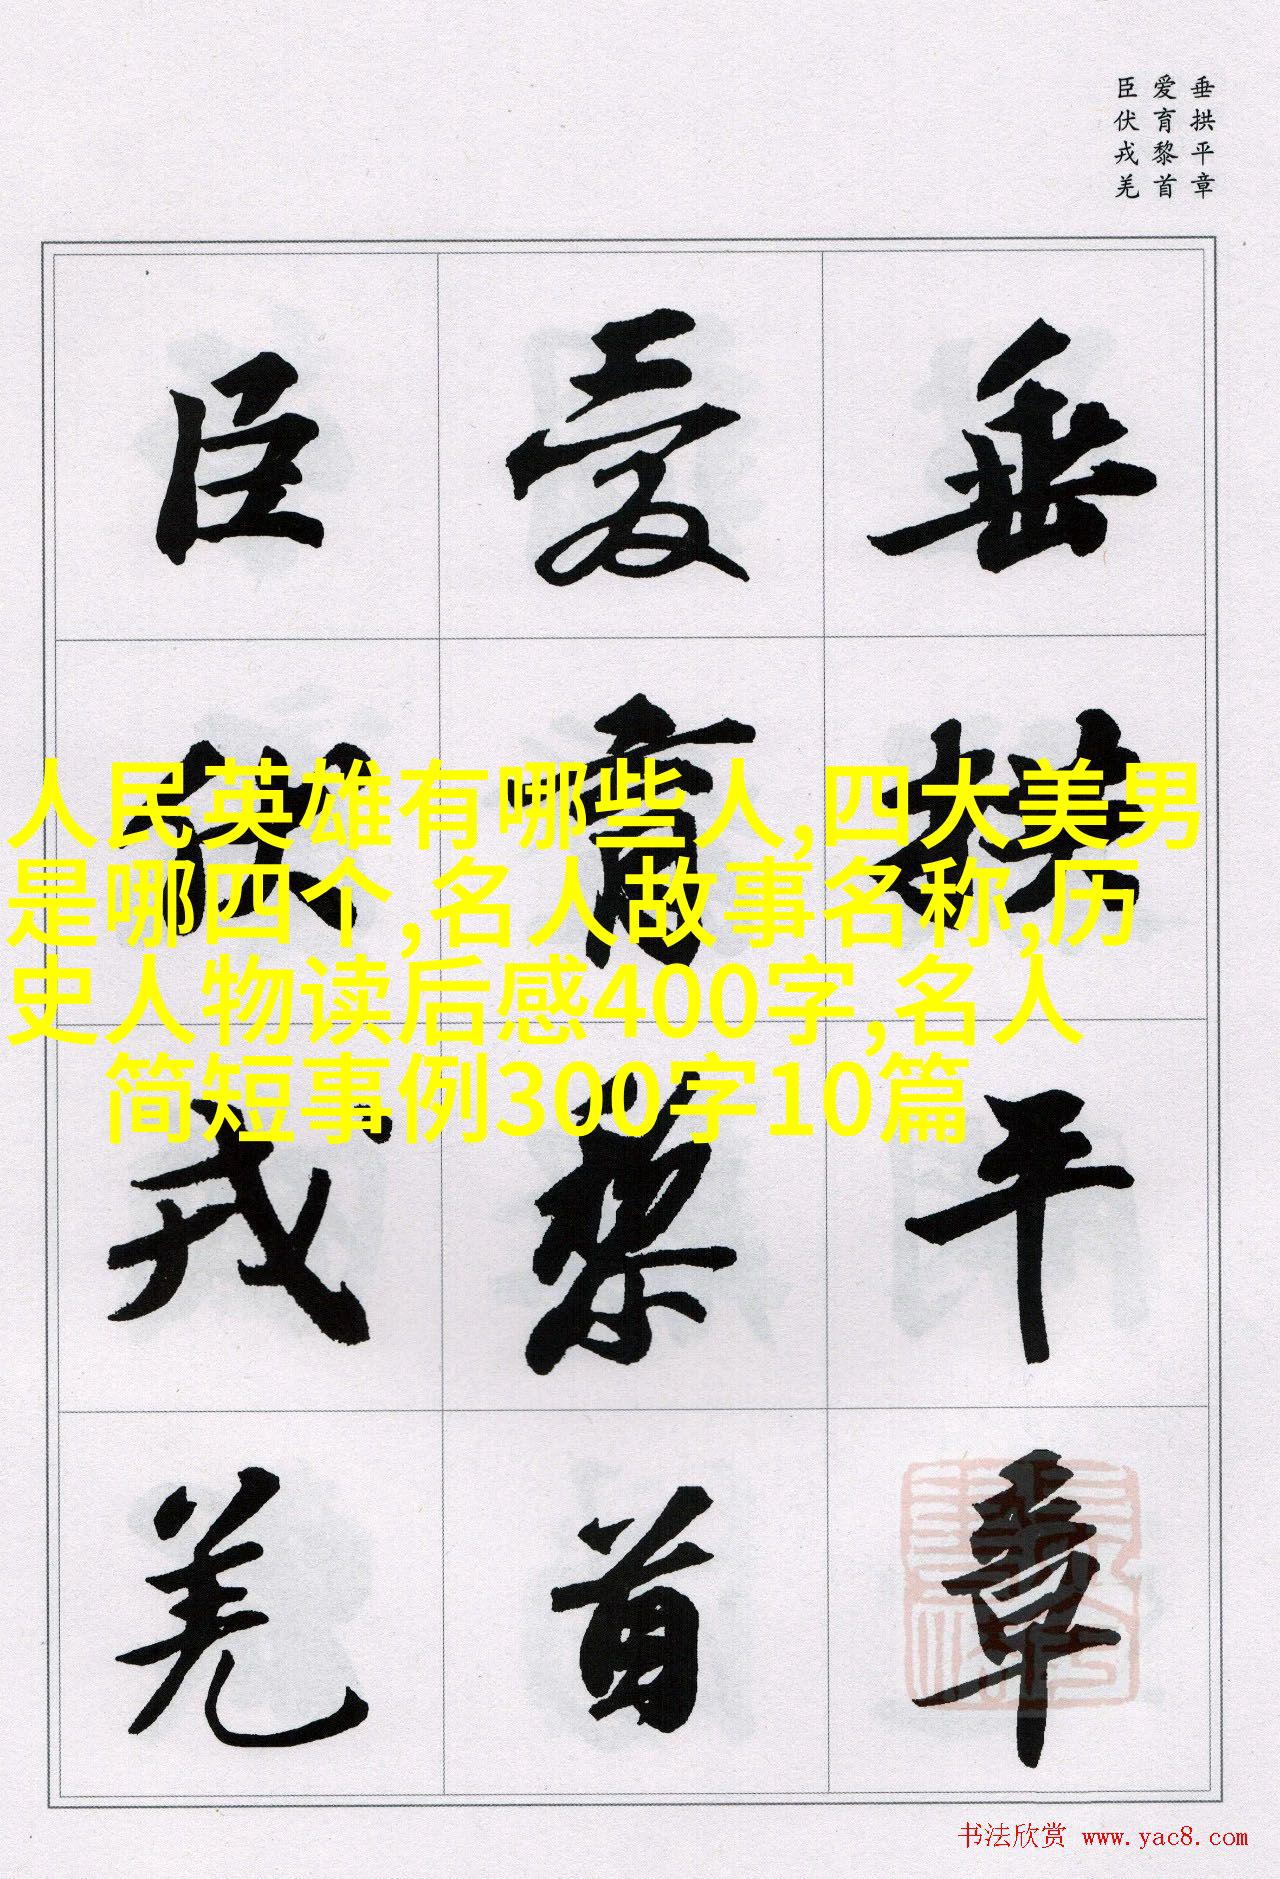 垂拱平章
爱育黎首
臣伏戎羌
垂拱平章
爱育黎首
臣伏戎羌
人民英雄有哪些人,四大美男
是哪四个,名人故事名称,历
史人物读后感400字,名人
简短事例300字10篇
书法欣赏 www.yac8.com